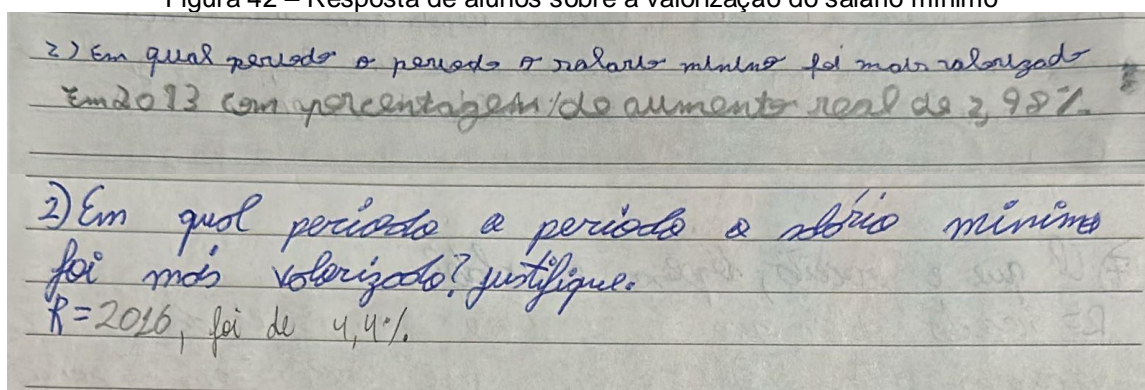 Figura 42 – Resposta de alunos sobre a valorização do salário mínimo
2) Em qual periodo o periodo o salario minino foi mais valorizado
Em 2013 com porcentagem do aumento real de 2,98%.
2) Em qual periodo a periodo o salário minimo
foi mais valorizado? justifique.
R=2016, foi de 4,4%.